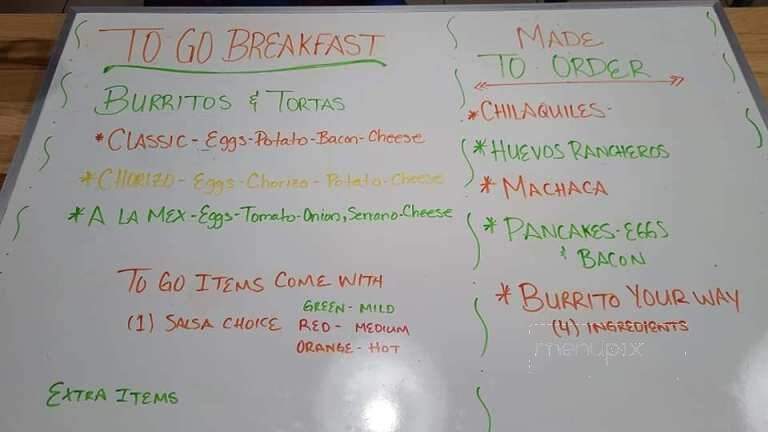 TO GO BREAKFAST
BURRITOS & TORTAS
* CLASSIC - Eggs-Potato-Bacon-Cheese
* CHORIZO - Eggs-Chorizo-Potato-Cheese
* A LA MEX - Eggs-Tomato-Onion, Serrano-Cheese
TO GO ITEMS COME WITH
(1) SALSA CHOICE
GREEN - MILD
RED - MEDIUM
ORANGE - HOT
EXTRA ITEMS
MADE
TO ORDER
* CHILAQUILES -
* HUEVOS RANCHEROS
* MACHACA
* PANCAKES - EGGS
& BACON
* BURRITO YOUR WAY
(4) INGREDIENTS
menupix